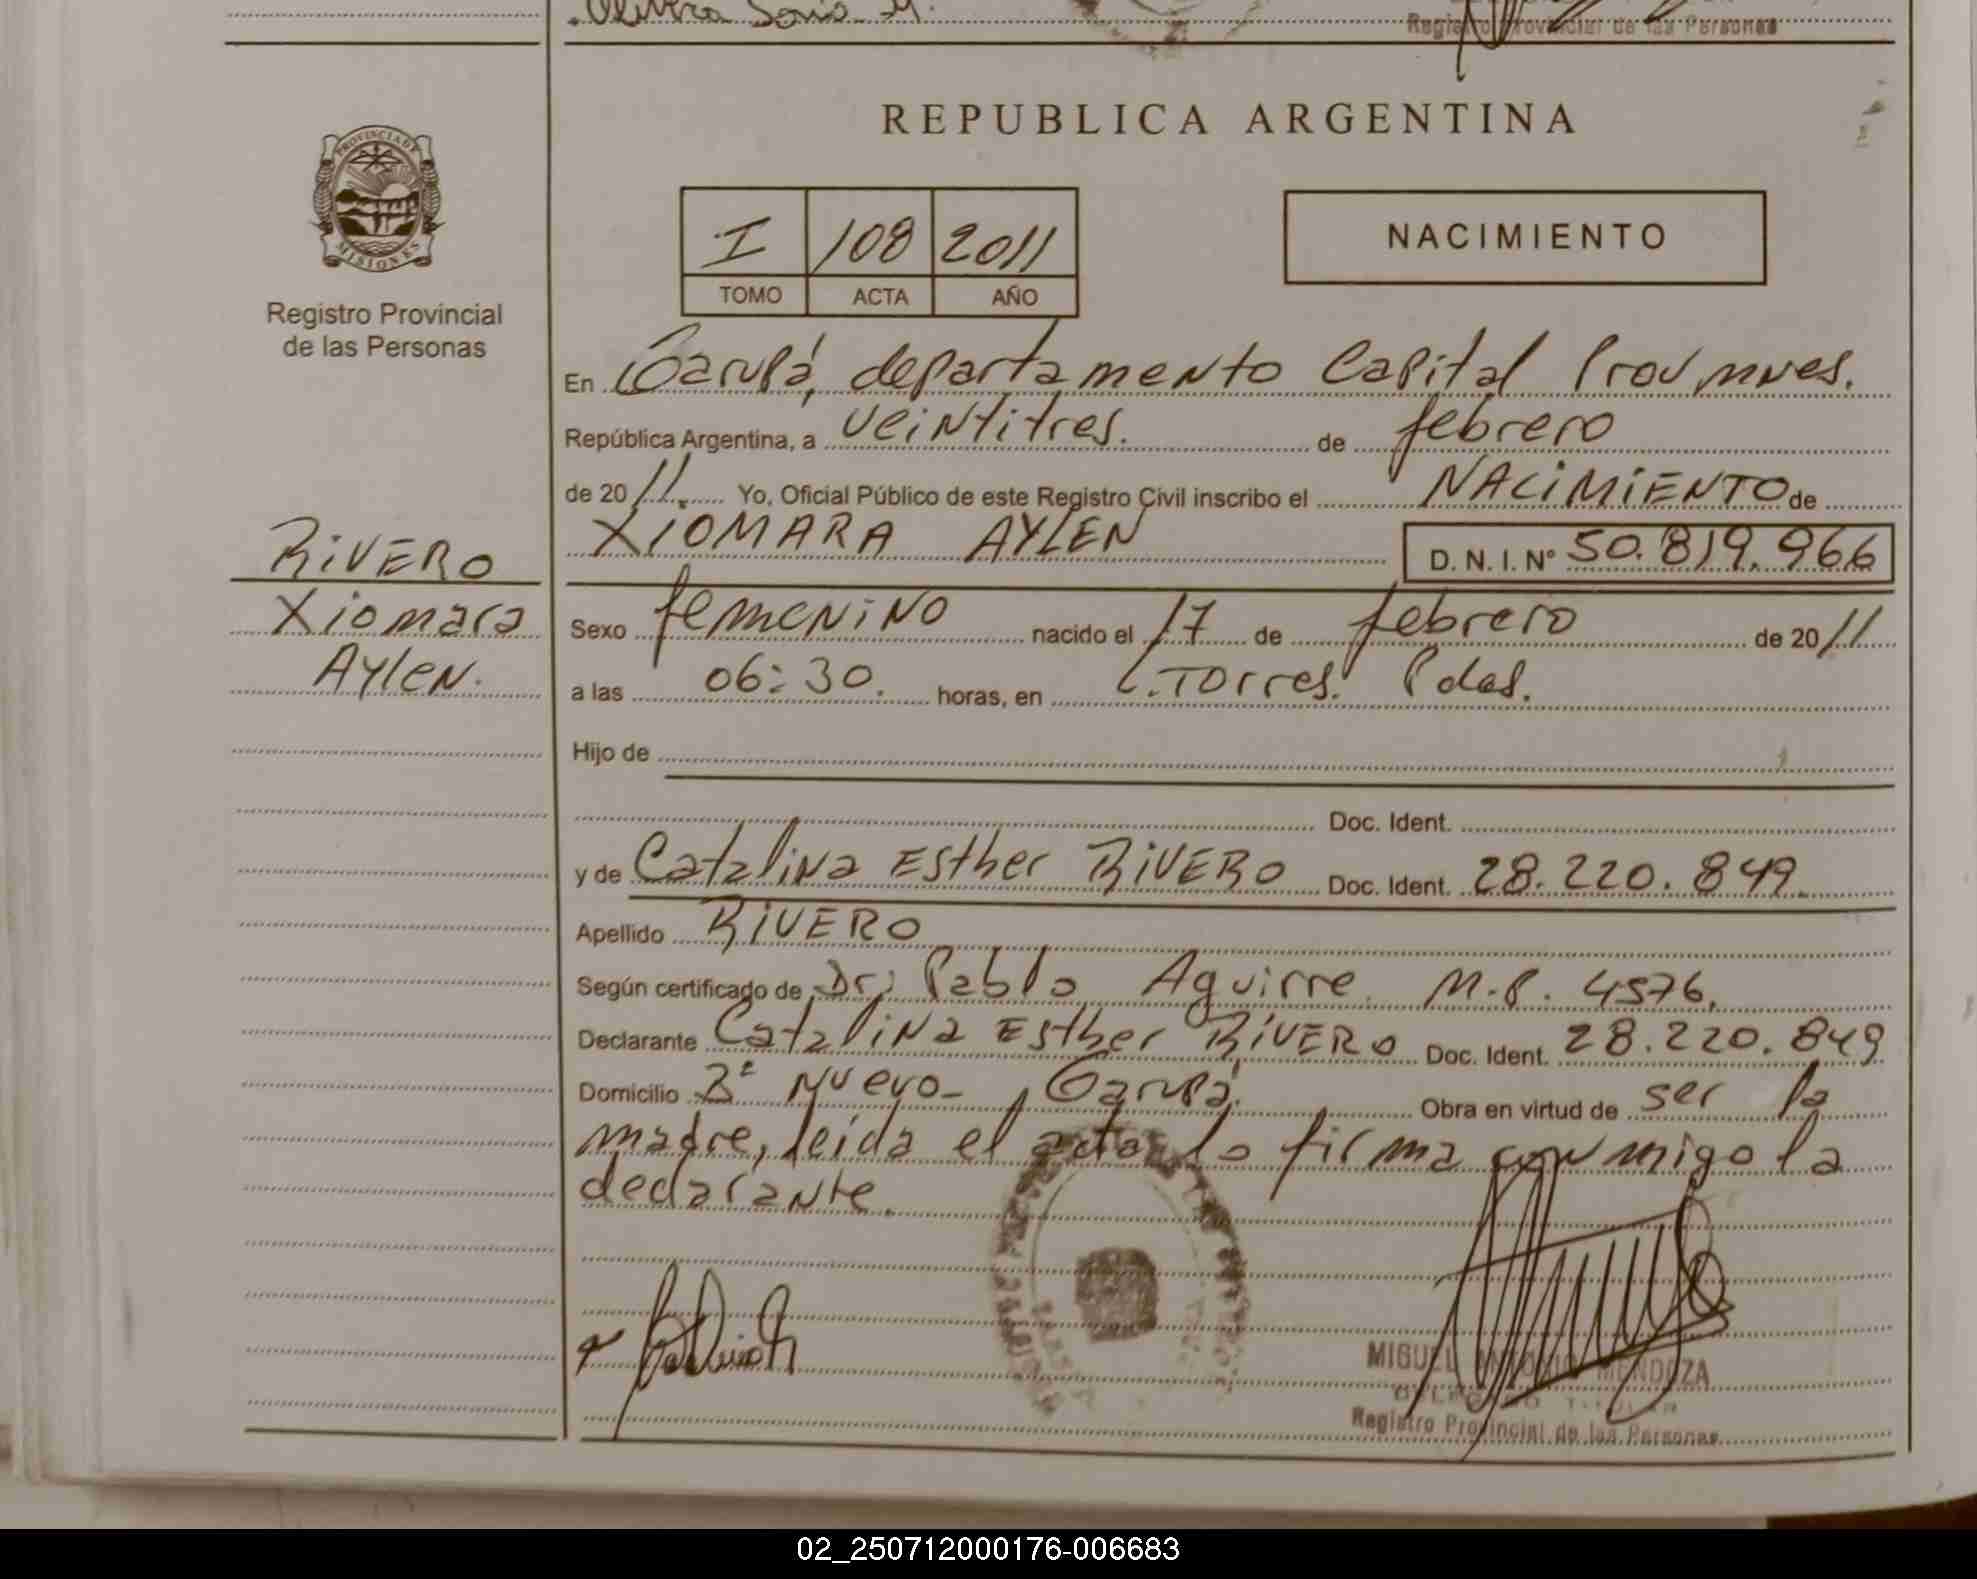 Olivera Sonia M.
Registro Provincial de las Personas
REPUBLICA ARGENTINA
PROVINCIA DE
MISIONES
Registro Provincial
de las Personas
I 108 2011
TOMO ACTA AÑO
NACIMIENTO
En Garupá, departamento Capital Prov mnes.
República Argentina, a veintitres. de febrero
de 2011. Yo, Oficial Público de este Registro Civil inscribo el NACIMIENTO de
XIOMARA AYLEN D. N. I. Nº 50.819.966
RIVERO
Xiomara
Aylen.
Sexo femenino nacido el 17 de febrero de 2011
a las 06:30. horas, en L. Torres. Pdas.
Hijo de
Doc. Ident.
y de Catalina Esther RIVERO Doc. Ident. 28.220.849.
Apellido RIVERO
Según certificado de Dr: Pablo Aguirre M.P. 4576.
Declarante Catalina Esther RIVERO Doc. Ident. 28.220.849
Domicilio Bº Nuevo - Garupá. Obra en virtud de ser la
madre, leida el acta lo firma conmigo la
declarante.
MIGUEL ANTONIO MENDOZA
DELEGADO TITULAR
Registro Provincial de las Personas
02_250712000176-006683